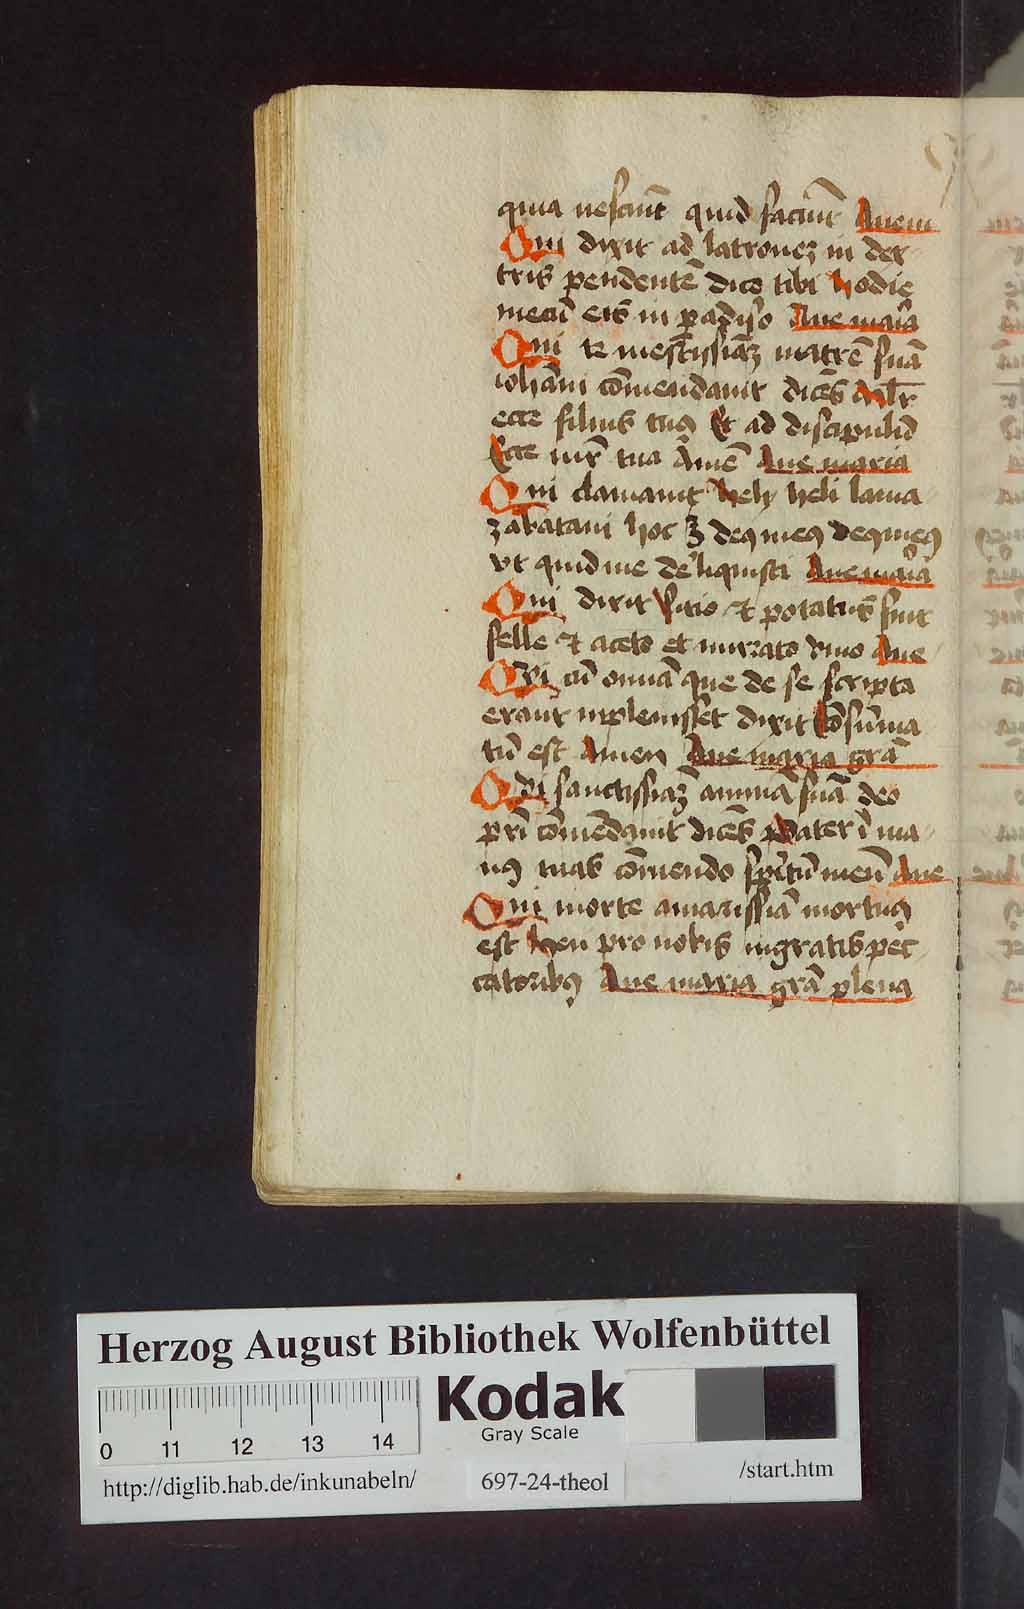 quia nesciūt quid faciūt Auem
Qui dixit ad latronez in dex
tris pendentē dico tibi hodie
mecū eris in padiso Aue maīa
Qui & mestissiāz matrē suā
iohāni cōmendauit dicēs mlr̄
ecce filius tuꝯ Et ad discipulū
Ecce mr̄ tua Amē Aue maria
Qui clamauit hely heli lama
zabatani hoc Ꝫ deꝯ meꝯ deꝯ meꝯ
vt quid me dereliquisti Aue maīa
Qui dixit sitio & potatus fuit
felle & aceto et mirrato vino Aue
Qui cū omīa que de se scripta
erant inpleuisset dixit Cōsūma
tū est Amen Aue maria grā
Qui sanctissiāz animā suā deo
pri cōmēdauit dicēs Pater ī ma
nꝯ tuas cōmendo spirtū meū Aue
Qui morte amarissiā mortuꝯ
est heu pro nobis ingratis pec
catoribꝯ Aue maria grā plena
Herzog August Bibliothek Wolfenbüttel
Kodak
Gray Scale
0 11 12 13 14
http://diglib.hab.de/inkunabeln/ 697-24-theol /start.htm